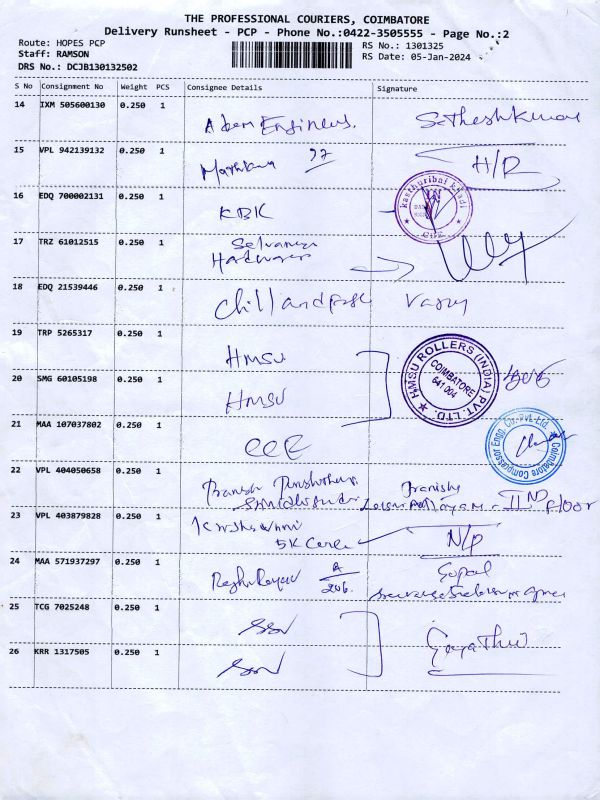 THE PROFESSIONAL COURIERS, COIMBATORE
Delivery Runsheet - PCP - Phone No.:0422-3505555 - Page No.:2
Route: HOPES PCP
RS No.: 1301325
Staff: RAMSON
RS Date: 05-Jan-2024
DRS No.: DCJB130132502
S No Consignment No Weight PCS Consignee Details Signature
14 IXM 505600130 0.250 1 Engineers. Satheshkumar
15 VPL 942139132 0.250 1 H/R
16 EDQ 700002131 0.250 1 KBK kasthuribai khadi CBE
17 TRZ 61012515 0.250 1
Hardwares
18 EDQ 21539446 0.250 1 Chill and
19 TRP 5265317 0.250 1 HMSU HMSU ROLLERS (INDIA) PVT. LTD. COIMBATORE 641 004
20 SMG 60105198 0.250 1 HMSU
21 MAA 107037802 0.250 1 CCE Coimbatore Compressor Engg. Co. Pvt. Ltd.
22 VPL 404050658 0.250 1 IIND Floor
23 VPL 403879828 0.250 1 N/P
5K
24 MAA 571937297 0.250 1 A/206. Gopal
25 TCG 7025248 0.250 1 SSV
26 KRR 1317505 0.250 1 SSV Gayathri